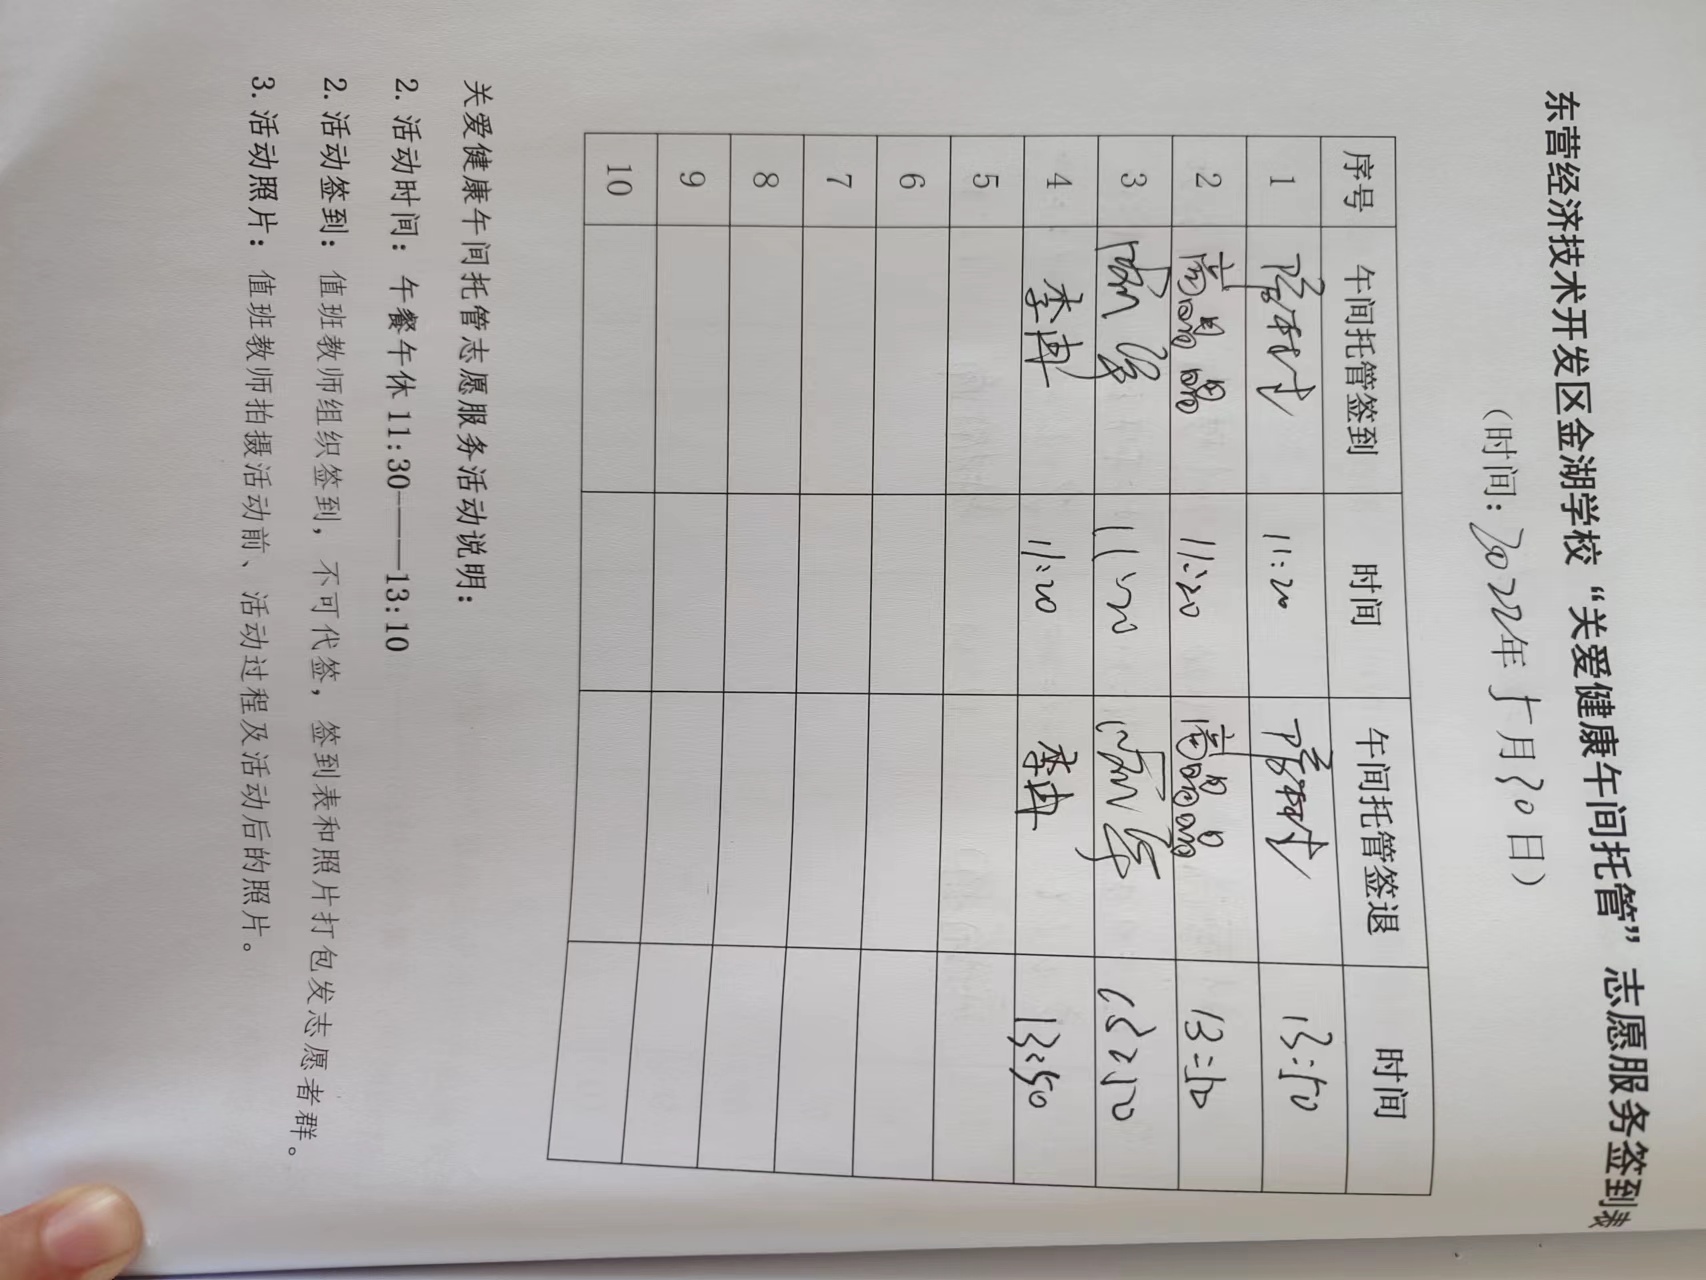 东营经济技术开发区金湖学校“关爱健康午间托管”志愿服务签到表
（时间：2022年5月30日）
序号 午间托管签到 时间 午间托管签退 时间
1 11:20 13:50
2 尚晶晶 11:20 13:50
3 11:20 13:50
4 李冉 11:20 李冉 13:50
5
6
7
8
9
10
关爱健康午间托管志愿服务活动说明：
2.活动时间：午餐午休11:30——13:10
2.活动签到：值班教师组织签到，不可代签，签到表和照片打包发志愿者群。
3.活动照片：值班教师拍摄活动前、活动过程及活动后的照片。